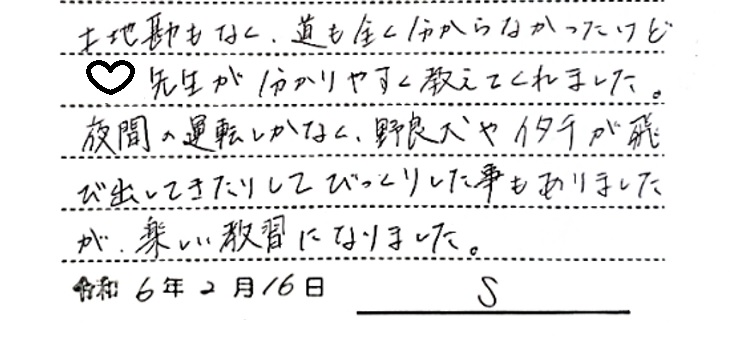 土地勘もなく、道も全く分からなかったけど
♡先生が分かりやすく教えてくれました。
夜間の運転しかなく、野良犬やイタチが飛
び出してきたりしてびっくりした事もありました
が、楽しい教習になりました。
令和6年2月16日 S